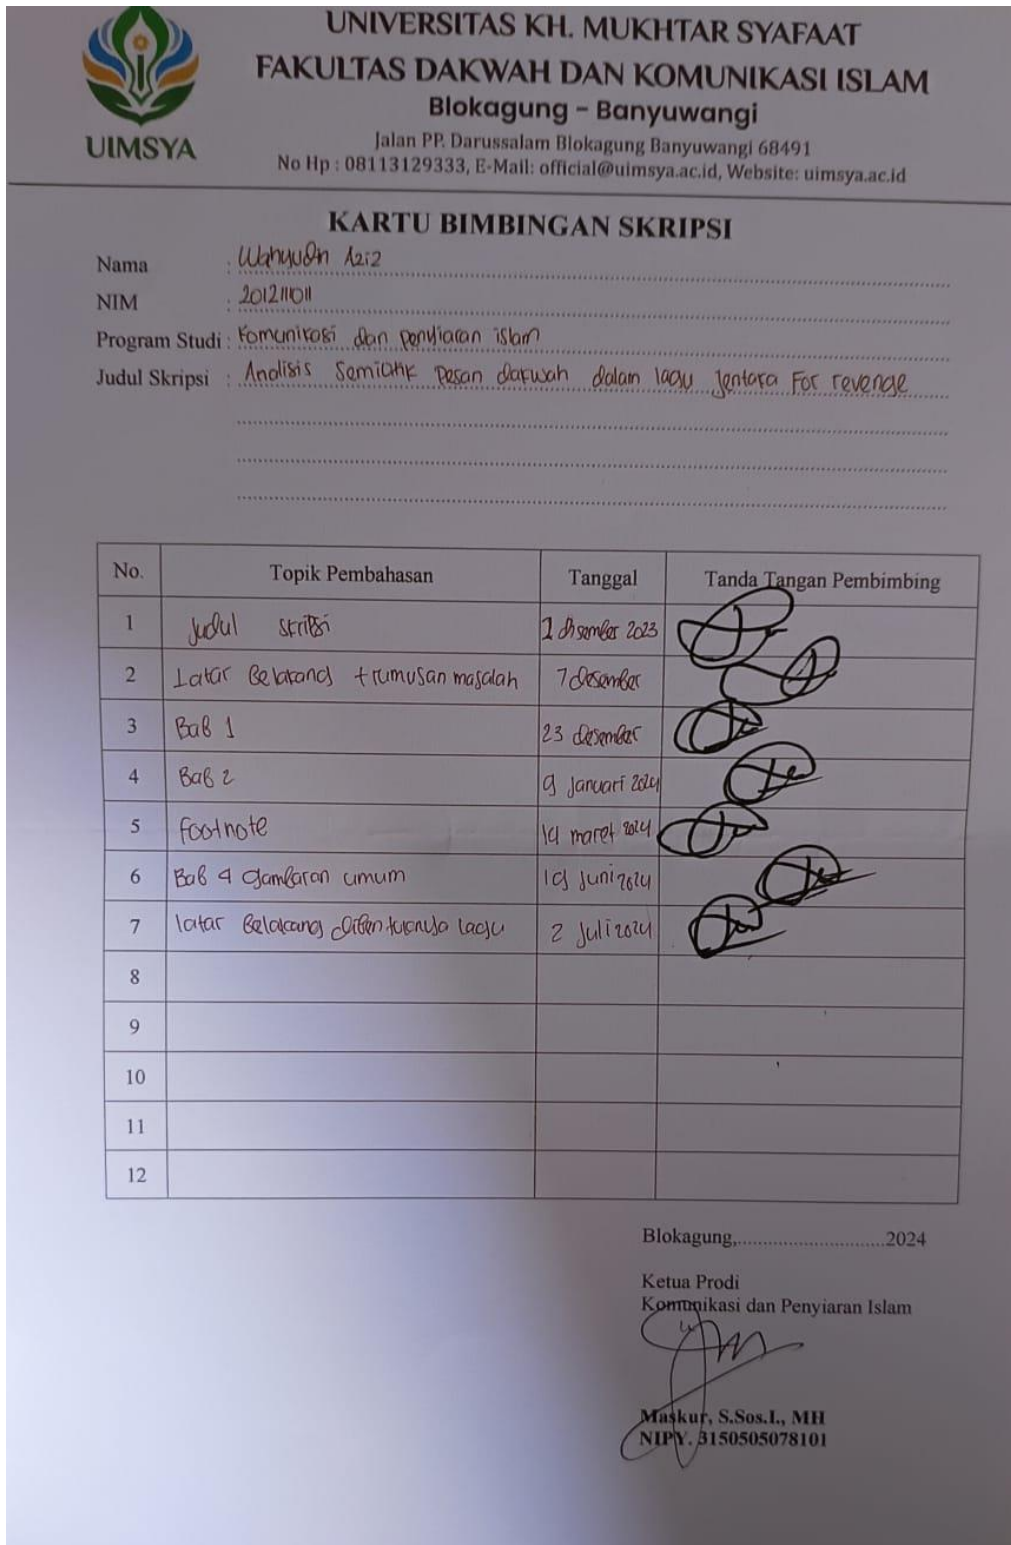 UNIVERSITAS KH. MUKHTAR SYAFAAT
FAKULTAS DAKWAH DAN KOMUNIKASI ISLAM
Blokagung – Banyuwangi
UIMSYA
Jalan PP. Darussalam Blokagung Banyuwangi 68491
No Hp : 08113129333, E-Mail: official@uimsya.ac.id, Website: uimsya.ac.id
KARTU BIMBINGAN SKRIPSI
Nama : Wahyudin Aziz
NIM : 2012111011
Program Studi : Komunikasi dan penyiaran islam
Judul Skripsi : Analisis Semiotik pesan dakwah dalam lagu Jentaka For revenge
No. Topik Pembahasan Tanggal Tanda Tangan Pembimbing
1 Judul skripsi 1 Disember 2023
2 Latar Belakang + rumusan masalah 7 Desember
3 Bab 1 23 desember
4 Bab 2 9 Januari 2024
5 footnote 14 maret 2024
6 Bab 4 gambaran umum 19 Juni 2024
7 latar Belakang dibentuknya lagu 2 Juli 2024
8
9
10
11
12
Blokagung,...........................2024
Ketua Prodi
Komunikasi dan Penyiaran Islam
Maskur, S.Sos.I., MH
NIPY. 3150505078101